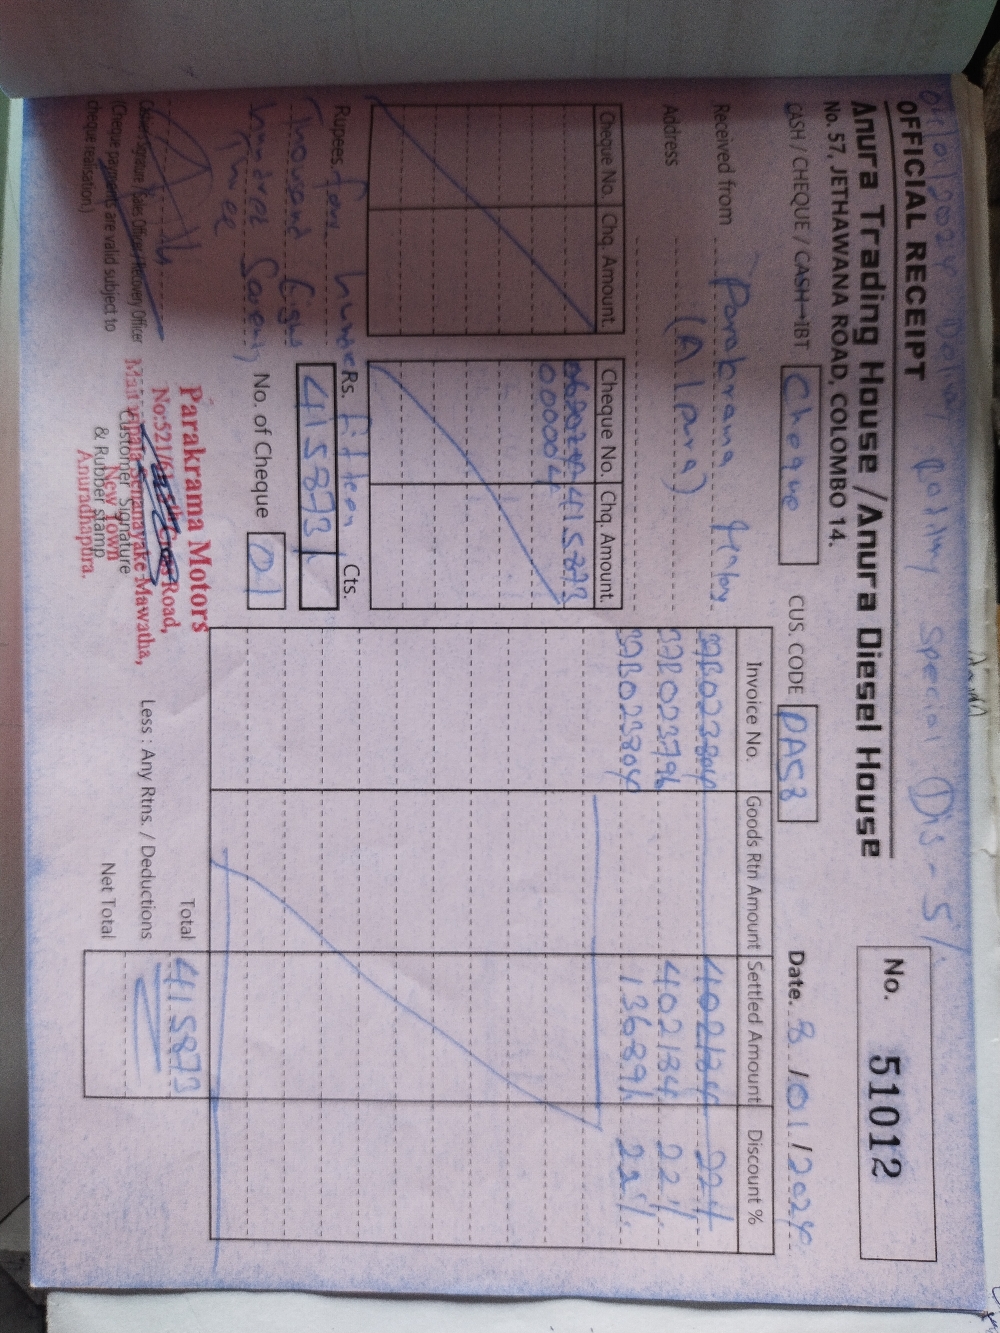 08/01/2024 Dollar Policy Special Dis - 5%
OFFICIAL RECEIPT
Anura Trading House / Anura Diesel House
No. 57, JETHAWANA ROAD, COLOMBO 14.
No. 51012
CASH / CHEQUE / CASH→IBT Cheque CUS. CODE PAS8 Date. 8/01/2024
Received from Parakrama
Address (Alpara)
Cheque No. Chq. Amount. Cheque No. Chq. Amount.
415873
000004
Rupees four hundred fifteen
Thousand Eight
hundred Seventy
Three
Rs. Cts.
415873/
No. of Cheque 01
Invoice No. Goods Rtn Amount Settled Amount Discount %
39B023804 402184 22%
39B023796 402184 22%
39B023804 13689/ 22%
Total 415873
Less : Any Rtns. / Deductions
Net Total
Sales Officer / Recovery Officer
(Cheque payments are valid subject to
cheque realisation)
Parakrama Motors
No:521/ Road,
Maithripala Senanayake Mawatha,
New Town
Anuradhapura.
Customer Signature
& Rubber stamp